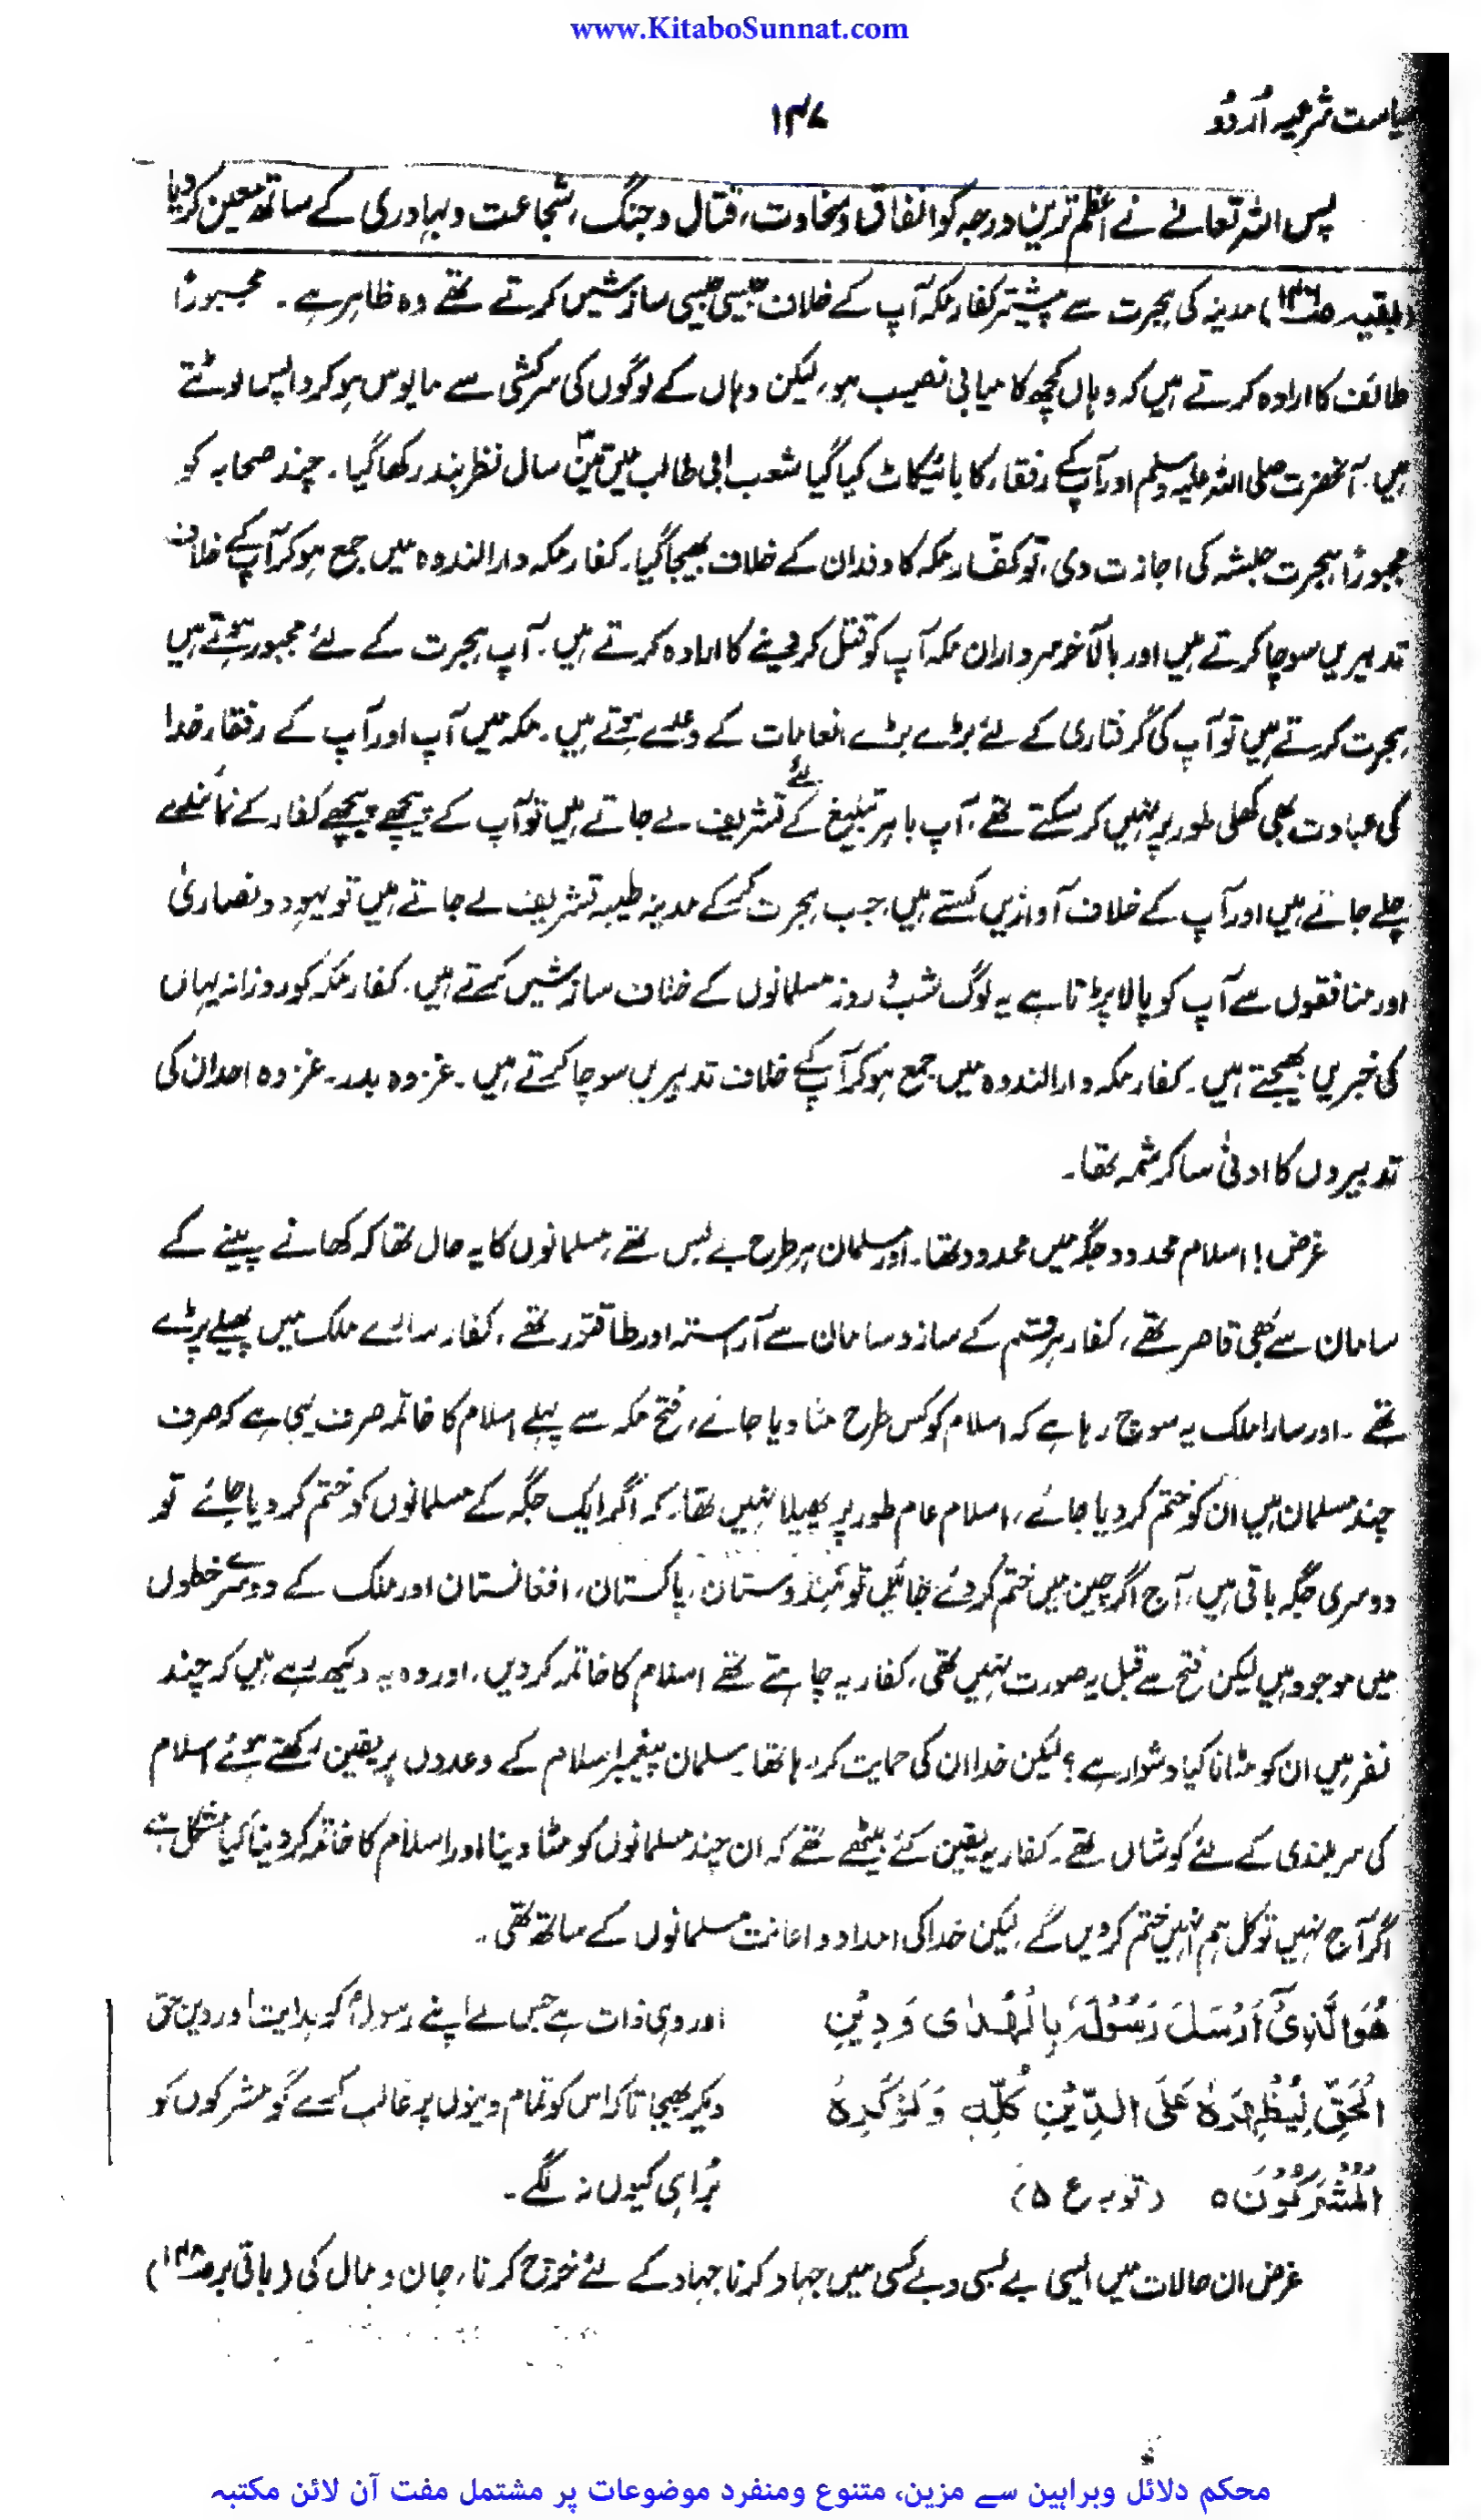 www.KitaboSunnat.com
سیاست شرعیہ اُردُو
۱۴۷
پس اللہ تعالےٰ نے اعظم ترین درجہ کو انفاق و سخاوت، قتال و جنگ، شجاعت و بہادری کے ساتھ معین کر دیا
(بقیہ صـ۱۴۶) مدینہ کی ہجرت سے پیشتر کفار مکہ آپ کے خلاف جیسی جیسی سازشیں کرتے تھے وہ ظاہر ہے۔ مجبوراً
طائف کا ارادہ کرتے ہیں کہ وہاں کچھ کامیابی نصیب ہو، لیکن وہاں کے لوگوں کی سرکشی سے مایوس ہو کر واپس لوٹتے
ہیں۔ آنحضرت صلی اللہ علیہ وسلم اور آپکے رفقاء کا بائیکاٹ کیا گیا شعب ابی طالب میں تین۳ سال نظر بند رکھا گیا۔ چند صحابہ کو
مجبوراً ہجرت حبشہ کی اجازت دی، تو کفّار مکہ کا وفد ان کے خلاف بھیجا گیا۔ کفار مکہ دار الندوہ میں جمع ہو کر آپکے خلاف
تدبیریں سوچا کرتے ہیں اور بالآخر سرداران مکہ آپ کو قتل کر دینے کا ارادہ کرتے ہیں۔ آپ ہجرت کے لئے مجبور ہوتے ہیں
ہجرت کرتے ہیں تو آپ کی گرفتاری کے لئے بڑے بڑے انعامات کے وعدے ہوتے ہیں۔ مکہ میں آپ اور آپ کے رفقاء خدا
کی عبادت بھی کھلی طور پر نہیں کر سکتے تھے، آپ باہر تبلیغ کے لئے تشریف لے جاتے ہیں تو آپ کے پیچھے پیچھے کفار کے نمائندے
چلے جاتے ہیں اور آپ کے خلاف آوازیں کستے ہیں، جب ہجرت کرکے مدینہ طیبہ تشریف لے جاتے ہیں تو یہود و نصاریٰ
اور منافقوں سے آپ کو پالا پڑتا ہے یہ لوگ شب و روز مسلمانوں کے خلاف سازشیں کرتے ہیں۔ کفار مکہ کو روزانہ یہاں
کی خبریں بھیجتے ہیں۔ کفار مکہ دار الندوہ میں جمع ہو کر آپکے خلاف تدبیریں سوچا کرتے ہیں۔ غزوہ بدر۔ غزوہ احد ان کی
تدبیروں کا ادنیٰ سا کرشمہ تھا۔
غرض! اسلام محدود جگہ میں محدود تھا۔ اور مسلمان ہر طرح بے بس تھے، مسلمانوں کا یہ حال تھا کہ کھانے پینے کے
سامان سے بھی قاصر تھے، کفار ہر قسم کے ساز و سامان سے آراستہ اور طاقتور تھے، کفار سارے ملک میں پھیلے پڑے
تھے۔ اور سارا ملک یہ سوچ رہا ہے کہ اسلام کو کس طرح مٹا دیا جائے، فتح مکہ سے پہلے اسلام کا خاتمہ صرف یہی ہے کہ صرف
چند مسلمان ہیں ان کو ختم کر دیا جائے، اسلام عام طور پر پھیلا نہیں تھا، کہ اگر ایک جگہ کے مسلمانوں کو ختم کر دیا جائے تو
دوسری جگہ باقی ہیں، آج اگر چین میں ختم کر دئے جائیں تو ہندوستان، پاکستان، افغانستان اور ملک کے دوسرے خطوں
میں موجود ہیں لیکن فتح سے قبل یہ صورت نہیں تھی، کفار یہ چاہتے تھے اسلام کا خاتمہ کر دیں، اور وہ یہ دیکھ رہے ہیں کہ چند
نفر ہیں ان کو مٹانا کیا دشوار ہے؟ لیکن خدا ان کی حمایت کر رہا تھا۔ مسلمان پیغمبر اسلام کے وعدوں پر یقین رکھتے ہوئے اسلام
کی سربلندی کے لئے کوشاں تھے۔ کفار یہ یقین کئے بیٹھے تھے کہ ان چند مسلمانوں کو مٹا دینا اور اسلام کا خاتمہ کر دینا کیا مشکل ہے
اگر آج نہیں تو کل ہم انہیں ختم کر دیں گے، لیکن خدا کی امداد و اعانت مسلمانوں کے ساتھ تھی۔
هُوَ الَّذِيْٓ اَرْسَلَ رَسُوْلَهٗ بِالْهُدٰى وَ دِيْنِ
اور وہی ذات ہے جس نے اپنے رسولؐ کو ہدایت اور دین حق
الْحَقِّ لِيُظْهِرَهٗ عَلَى الدِّيْنِ كُلِّهٖ وَ لَوْ كَرِهَ
دیکر بھیجا تاکہ اس کو تمام دینوں پر غالب کرے گو مشرکوں کو
الْمُشْرِكُوْنَ ہ (توبہ ع ۵)
بُرا ہی کیوں نہ لگے۔
غرض ان حالات میں ایسی بے بسی و بے کسی میں جہاد کرنا جہاد کے لئے خرچ کرنا، جان و مال کی (باقی بر صـ۱۴۸)
محکم دلائل وبراہین سے مزین، متنوع ومنفرد موضوعات پر مشتمل مفت آن لائن مکتبہ